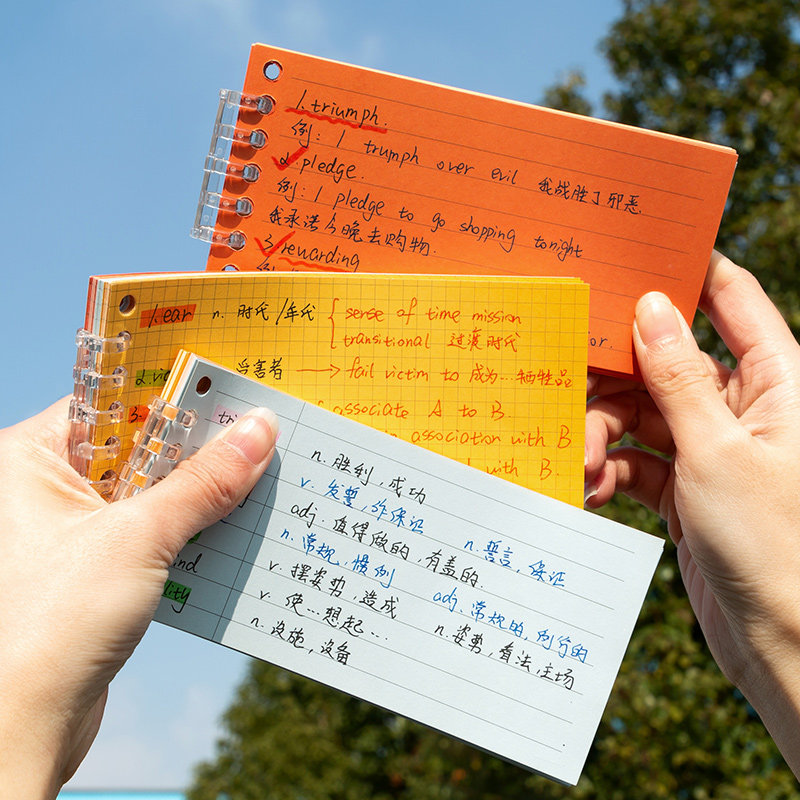 1. triumph.
例: I trumph over evil 我战胜了邪恶.
2. pledge.
例: I pledge to go shopping tonight
我承诺今晚去购物.
3. rewarding
例
or.
1. ear n. 时代/年代 { sense of time mission
transitional 过渡时代
2. vic 受害者 → fall victim to 成为...牺牲品
3. associate A to B.
in association with B
with B.
tri n. 胜利, 成功
v. 发誓, 作保证 n. 誓言, 保证
adj. 值得做的, 有益的
n. 常规, 惯例 adj. 常规的, 例行的
v. 摆姿势, 造成 n. 姿势, 看法, 主场
nd v. 使...想起...
lity n. 设施, 设备